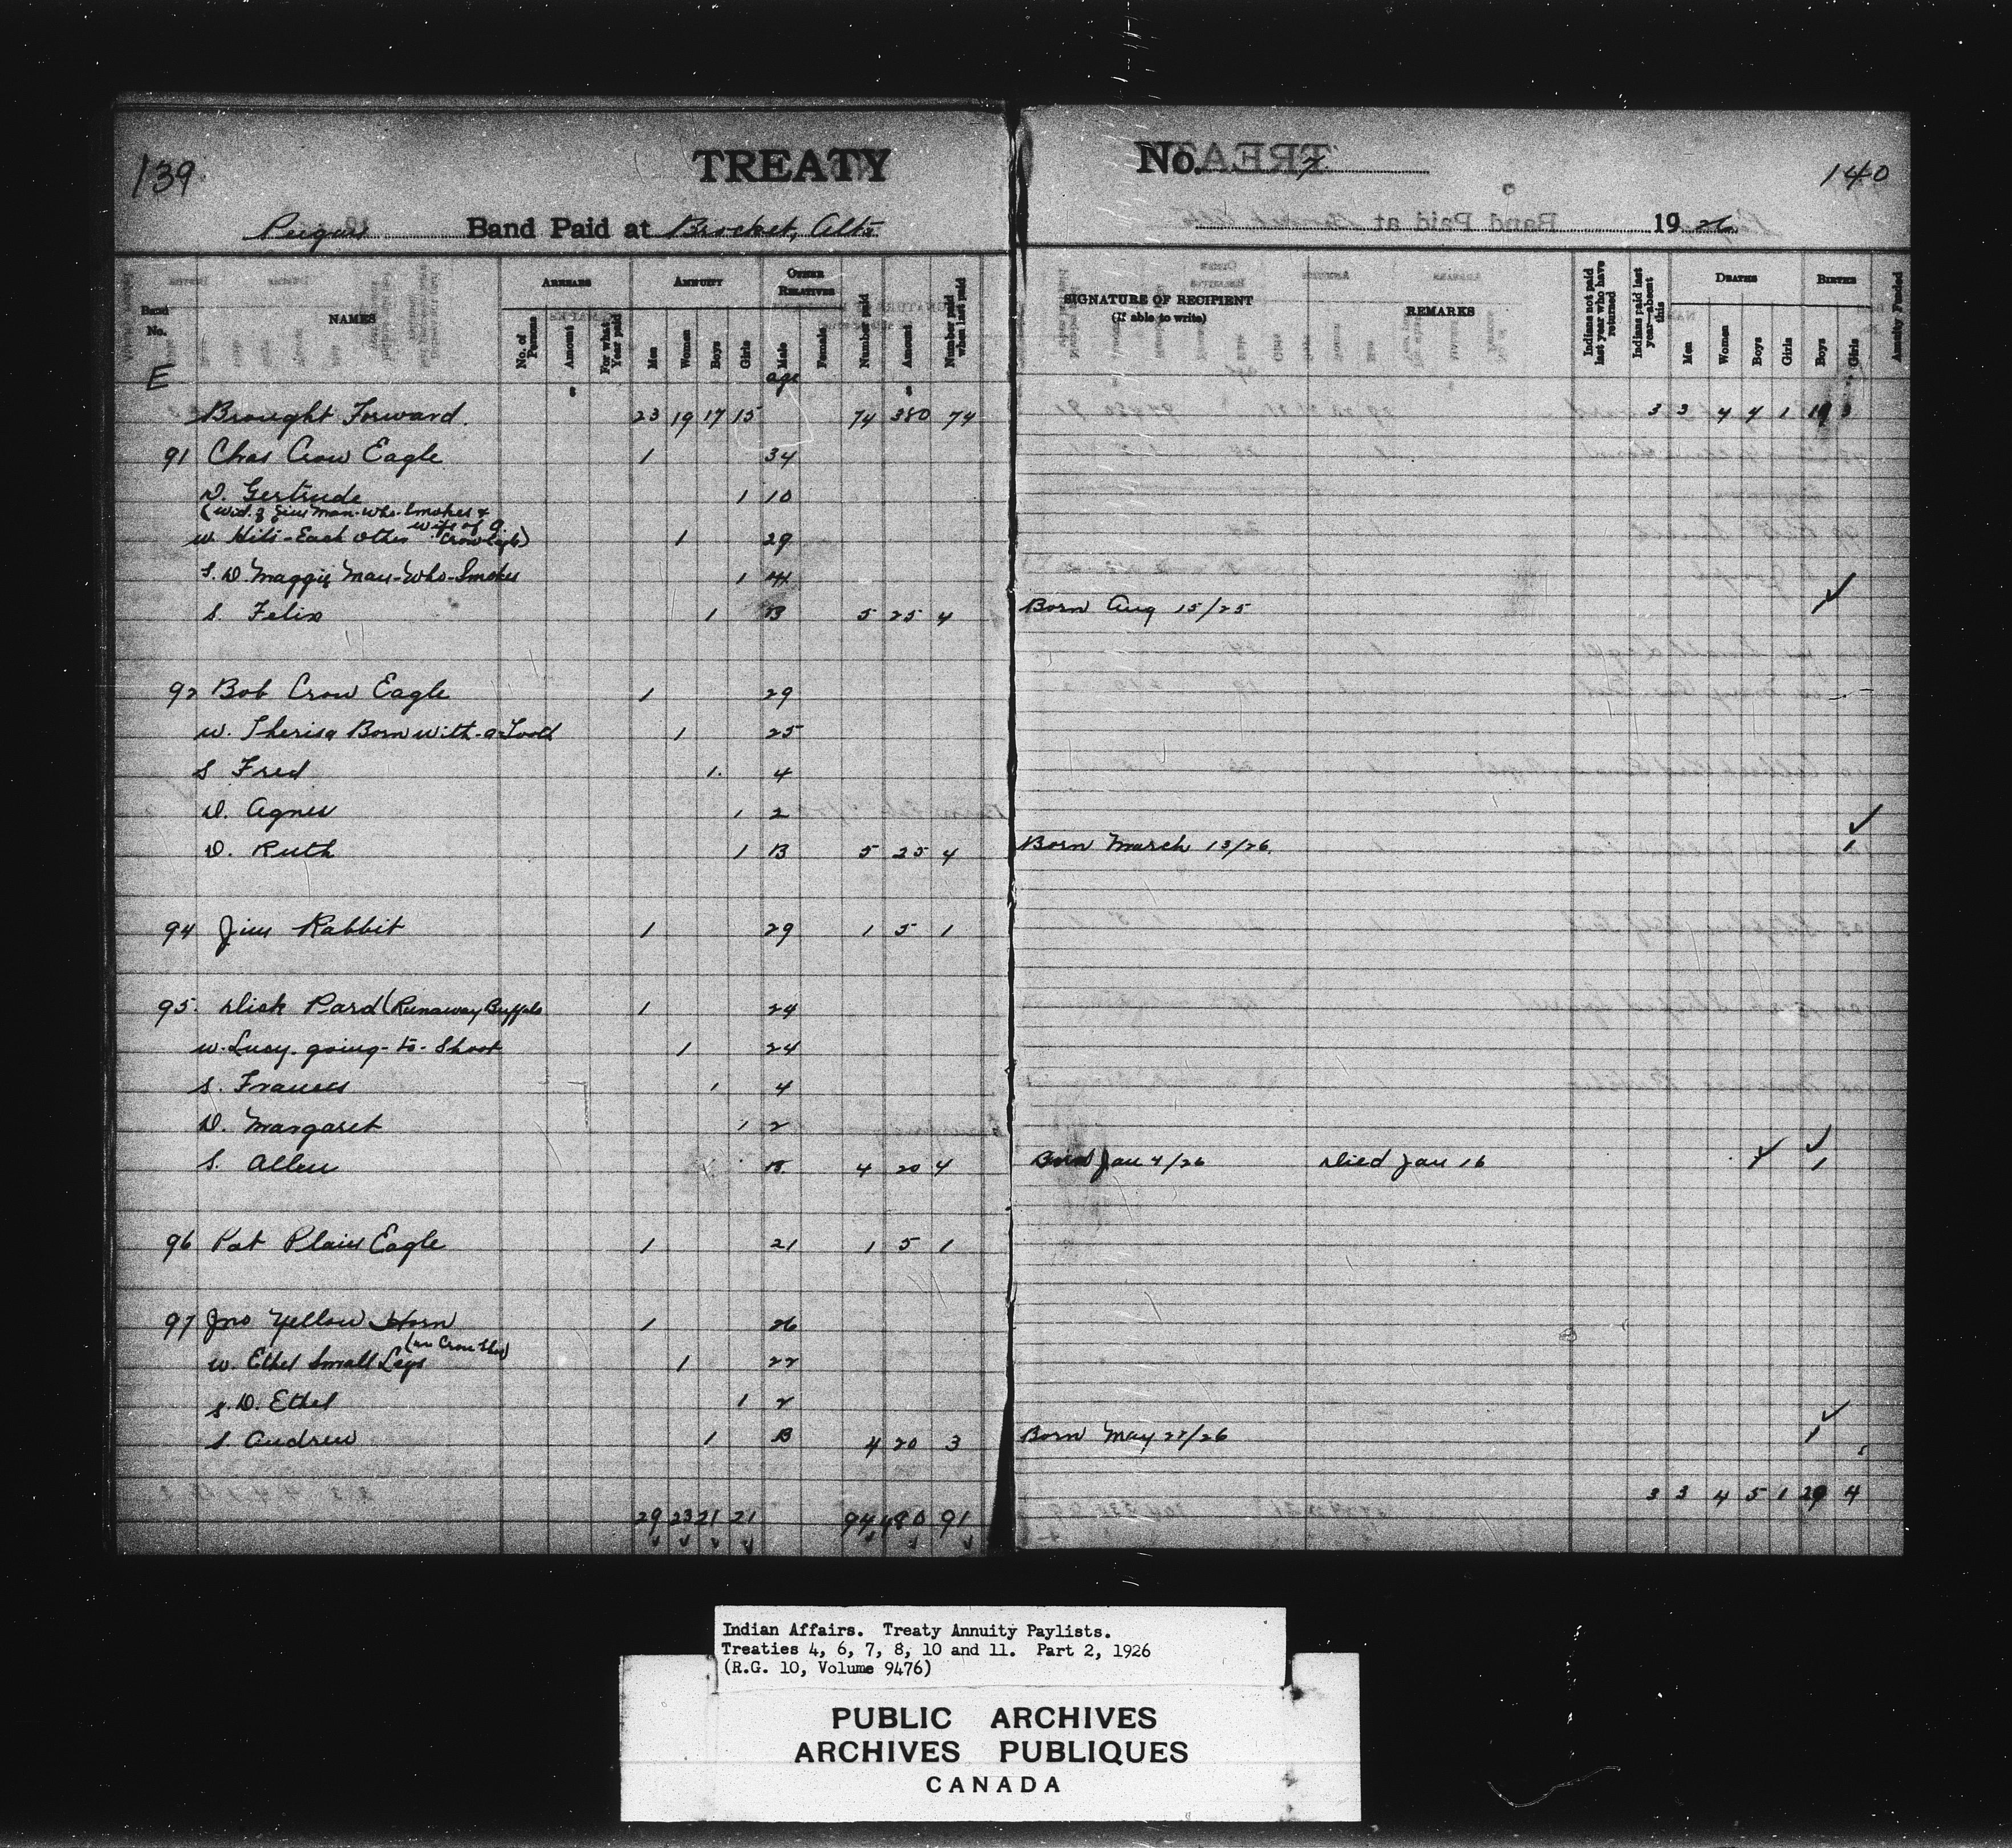 139
TREATY
No. 7
140
Peigan Band Paid at Brocket, Alta
1926
Band No.
NAMES
ARREARS
No. of Persons
Amount
For what Year paid
ANNUITY
Men
Women
Boys
Girls
OTHER RELATIVES
Male
Female
Number paid
Amount
Number paid when last paid
SIGNATURE OF RECIPIENT
(If able to write)
REMARKS
Indians not paid last year who have returned
Indians paid last year—absent this
DEATHS
Men
Women
Boys
Girls
BIRTHS
Boys
Girls
Annuity Funded
E
age
Brought Forward. 23 19 17 15 74 380 74 3 3 4 4 1
91 Chas Crow Eagle 1 34
D. Gertrude 1 10
(Wid. of Jim Man-Who-Smokes &
wife of C.
w. Hits-Each Other Crow Eagle) 1 29
S. D. Maggie Man-Who-Smokes 1
S. Felix 1 B 5 25 4 Born Aug 15/25 1
92 Bob Crow Eagle 1 29
w. Theresa Born with-a-Tooth 1 25
S Fred 1 4
D. Agnes 1 2
D. Ruth 1 B 5 25 4 Born March 13/26. 1
94 Jim Rabbit 1 29 1 5 1
95. Dick Pard (Runaway Buffalo 1 24
w. Lucy. going-to-Shoot 1 24
S. Francis 1 4
D. Margaret 1 2
S. Allen B 4 20 4 Born Jan 4/26 Died Jan 16 1 1
96 Pat Plain Eagle 1 21 1 5 1
97 Jno Yellow Horn 1 26
w. Ethel Small Legs 1 22
S. D. Ethel 1 2
S. Andrew 1 B 4 20 3 Born May 22/26 1
3 3 4 5 1 20 4
29 23 21 21 94 480 91
Indian Affairs. Treaty Annuity Paylists.
Treaties 4, 6, 7, 8, 10 and 11. Part 2, 1926
(R.G. 10, Volume 9476)
PUBLIC ARCHIVES
ARCHIVES PUBLIQUES
CANADA